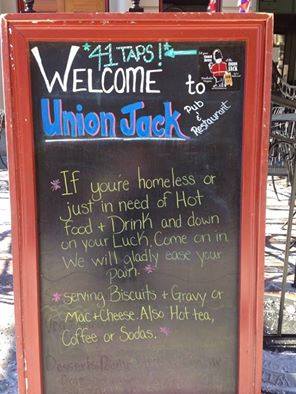 *41 TAPS!*
WELCOME
to
Union Jack
Pub &
Restaurant
UNION
JACK
* If you're homeless or
just in need of Hot
food + Drink and down
on your Luck. Come on in
We will gladly ease your
Pain. *
* serving Biscuits + Gravy or
Mac + Cheese. Also Hot tea,
Coffee or Sodas. *